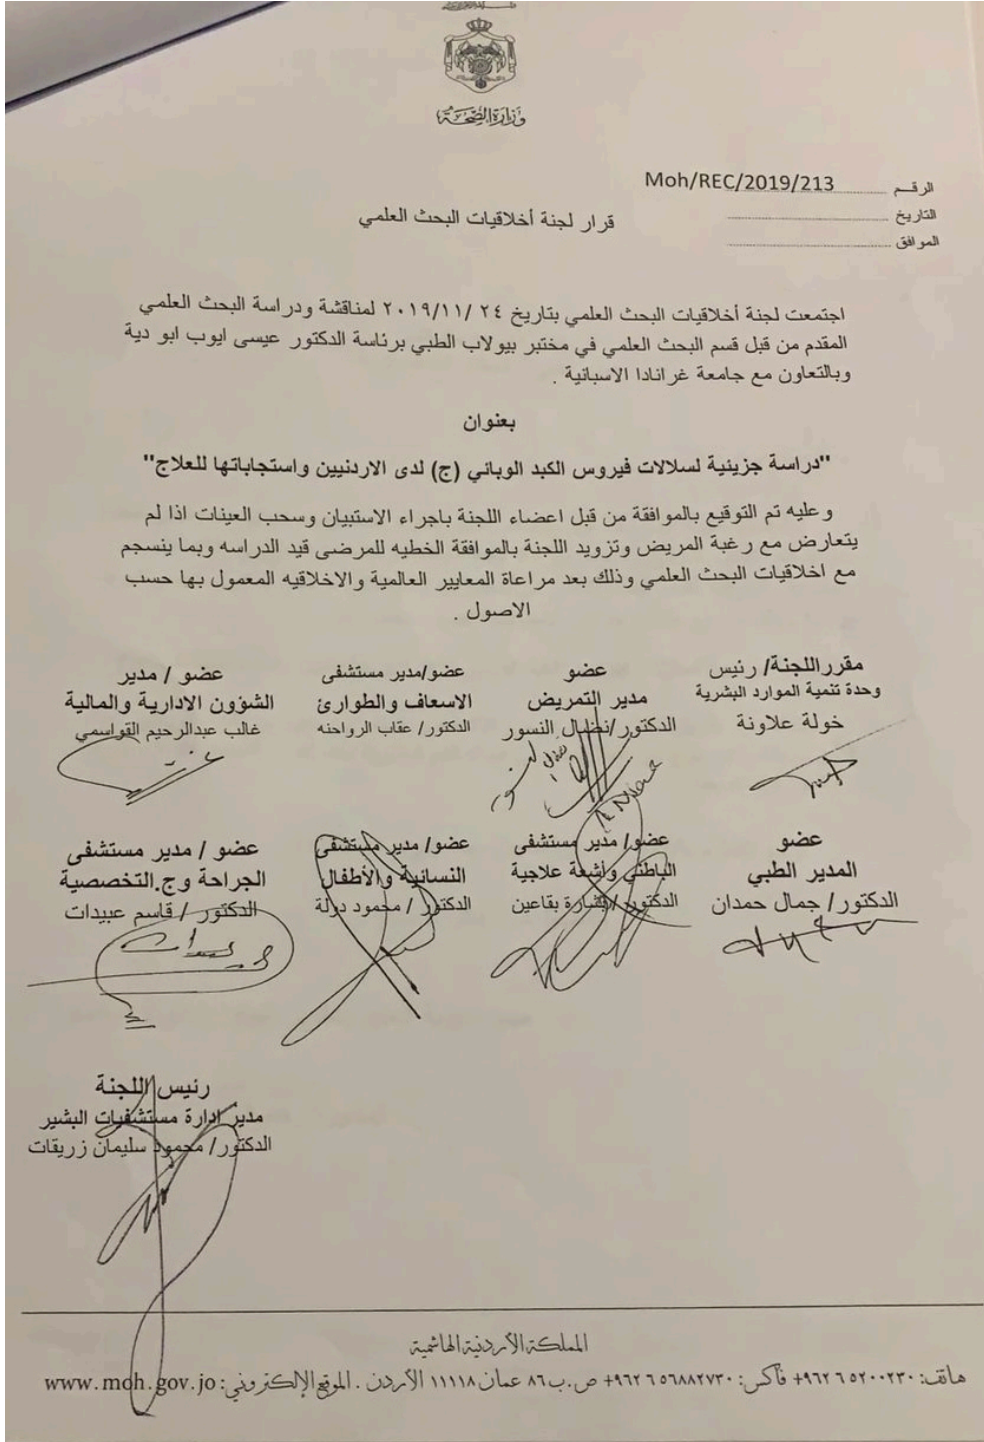 وزارة الصحة
الرقم Moh/REC/2019/213
التاريخ
الموافق
قرار لجنة أخلاقيات البحث العلمي
اجتمعت لجنة أخلاقيات البحث العلمي بتاريخ ٢٤ /٢٠١٩/١١ لمناقشة ودراسة البحث العلمي
المقدم من قبل قسم البحث العلمي في مختبر بيولاب الطبي برئاسة الدكتور عيسى ايوب ابو دية
وبالتعاون مع جامعة غرانادا الاسبانية .
بعنوان
"دراسة جزيئية لسلالات فيروس الكبد الوبائي (ج) لدى الاردنيين واستجاباتها للعلاج"
وعليه تم التوقيع بالموافقة من قبل اعضاء اللجنة باجراء الاستبيان وسحب العينات اذا لم
يتعارض مع رغبة المريض وتزويد اللجنة بالموافقة الخطيه للمرضى قيد الدراسه وبما ينسجم
مع اخلاقيات البحث العلمي وذلك بعد مراعاة المعايير العالمية والاخلاقيه المعمول بها حسب
الاصول .
مقرراللجنة/ رئيس
وحدة تنمية الموارد البشرية
خولة علاونة
عضو
مدير التمريض
الدكتور/نضال النسور
عضو/مدير مستشفى
الاسعاف والطوارئ
الدكتور/ عقاب الرواحنه
عضو / مدير
الشؤون الادارية والمالية
غالب عبدالرحيم القواسمي
عضو
المدير الطبي
الدكتور/ جمال حمدان
عضو/ مدير مستشفى
الباطني وأشعة علاجية
الدكتور/ بشارة بقاعين
عضو/ مدير مستشفى
النسائية والأطفال
الدكتور / محمود دولة
عضو / مدير مستشفى
الجراحة وج.التخصصية
الدكتور / قاسم عبيدات
رئيس اللجنة
مدير ادارة مستشفيات البشير
الدكتور/ محمود سليمان زريقات
المملكة الأردنية الهاشمية
هاتف: ٥٢٠٠٢٣٠ ٦ ٩٦٢+ فاكس: ٥٦٨٨٢٧٣٠ ٦ ٩٦٢+ ص.ب ٨٦ عمان ١١١١٨ الأردن . الموقع الإلكتروني: www.moh.gov.jo